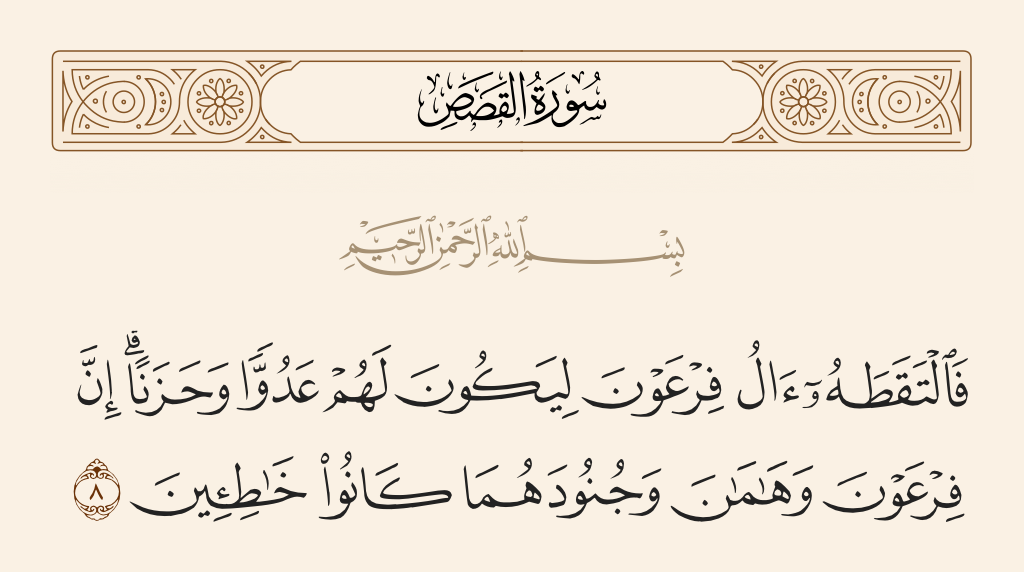 سُورَةُ القَصَصِ
بِسْمِ ٱللَّهِ ٱلرَّحْمَٰنِ ٱلرَّحِيمِ
فَٱلْتَقَطَهُۥٓ ءَالُ فِرْعَوْنَ لِيَكُونَ لَهُمْ عَدُوًّا وَحَزَنًا ۗ إِنَّ
فِرْعَوْنَ وَهَٰمَٰنَ وَجُنُودَهُمَا كَانُوا۟ خَٰطِـِٔينَ ٨